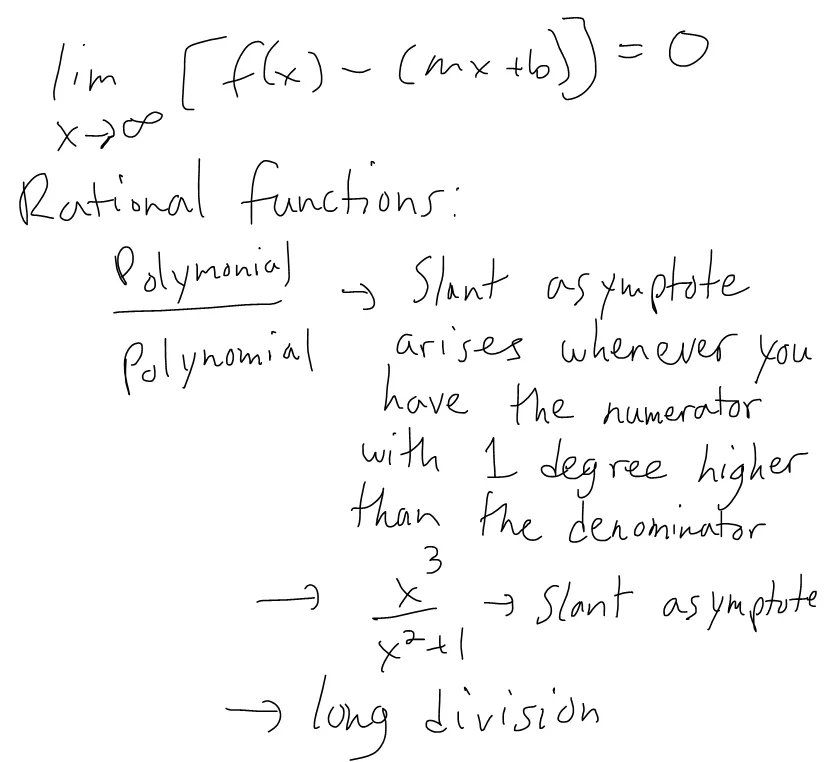 lim [f(x) - (mx+b)] = 0
x→∞
Rational functions:
Polymonial → Slant asymptote
Polynomial arises whenever you
have the numerator
with 1 degree higher
than the denominator
→ x³/x²+1 → Slant asymptote
→ long division